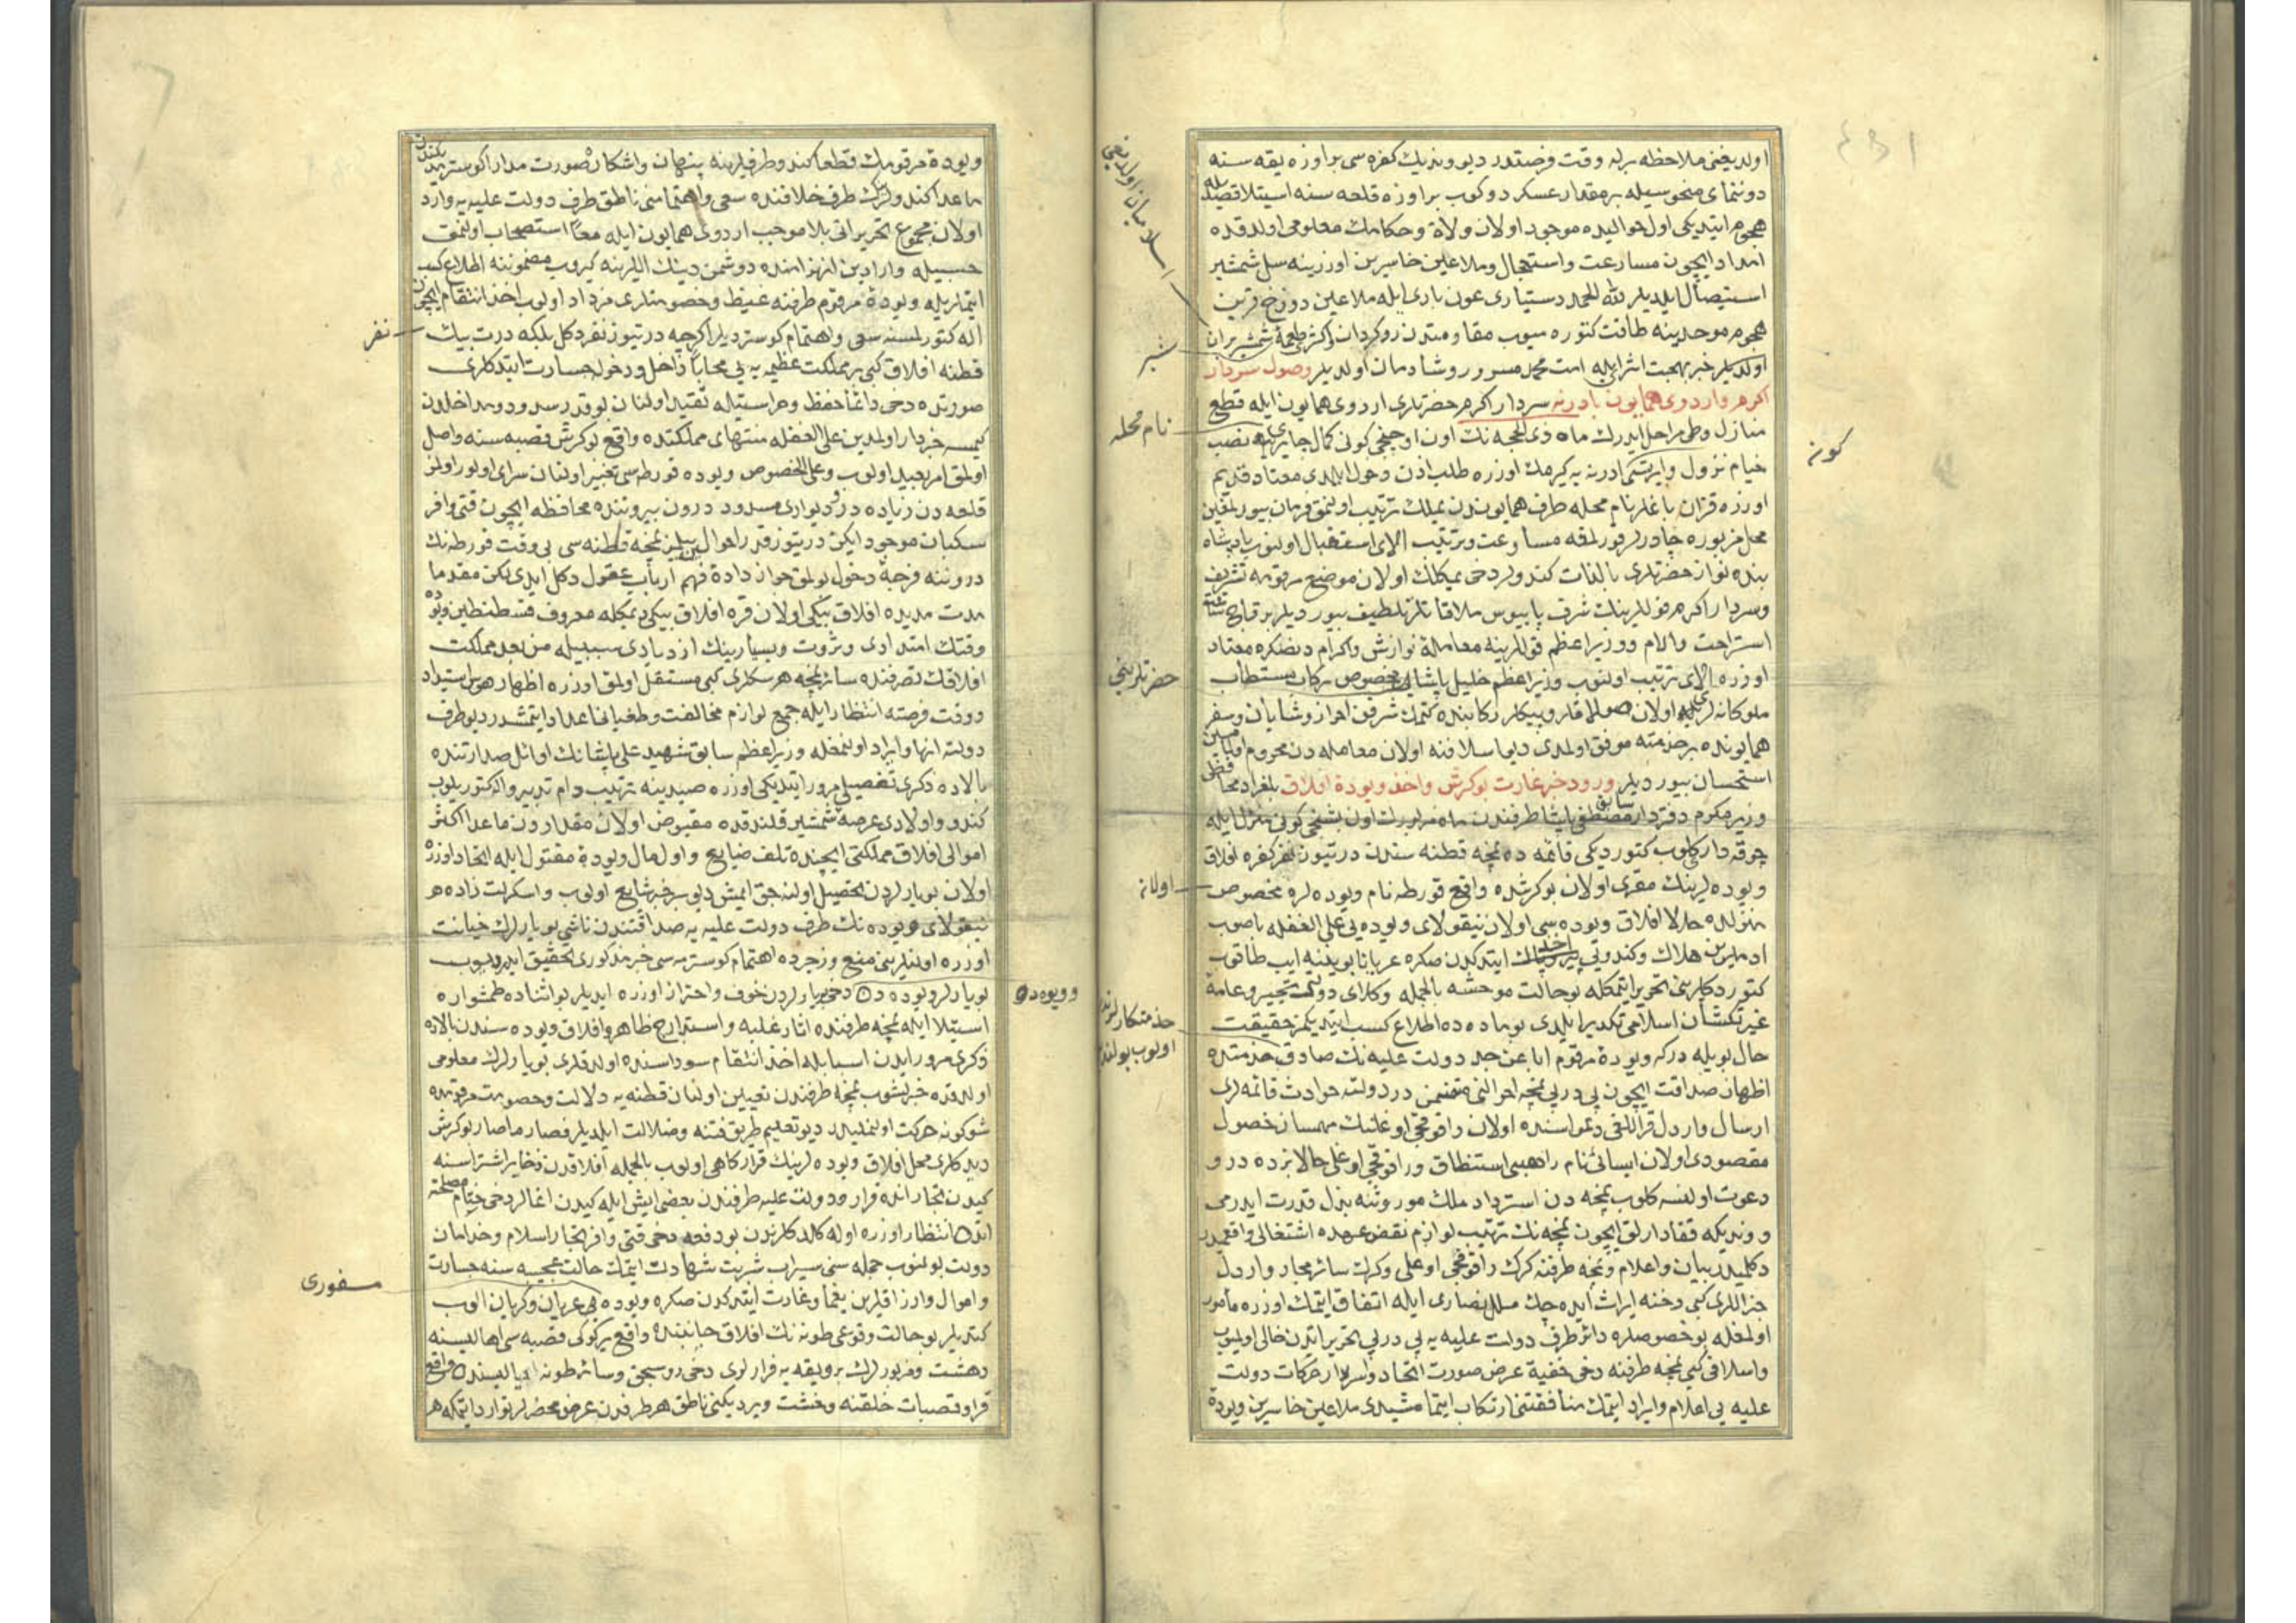 اولدیغنی ملاحظه برله وقت فرصتدر دیو وندیك كفره سی براوزه یقه سنه
دوننمای منحوسیله برمقدار عسكر دوكوب براوزه قلعه سنه استیلا قصدیله
هجوم ایتدیكی اول حوالیده موجود اولان ولاة وحكامك معلومی اولدقده
امداد ایچون مسارعت واستعجال وملاعین خاسرین اوزرینه سل شمشیر
استیصال ایلدیلر لله الحمد دستیاری عون باری ایله ملاعین دوزخ قرین
هجوم موحدینه طاقت كتوره میوب مقاومتدن روكردان واكثری طعمهٔ شمشیر بران
اولدیلر خبر بهجت اثرایله امت محمد مسرور وشادمان اولدیلر وصول سردار
اكرم واردوی همایون بادرنه سردار اكرم حضرتلری اردوی همایون ایله قطع
منازل وطی مراحل ایدرك ماه ذی الحجه نك اون اوچنجی كونی كمال چایرینه نصب
خیام نزول وایرتسی ادرنه یه كیرمك اوزره طلب اذن دخول ایلدی معتاد قدیم
اوزره قزان باغلر نام محله طرف همایوندن یملك ترتیب اولنمق فرمان بیورلمغین
محل مزبوره چادرلر قورلمقه مسارعت وترتیب الای استقبال اولنوب پادشاه
بنده نواز حضرتلری بالذات كندولر دخی یمكلك اولان موضع مرقومه تشریف
وسردار اكرم قوللرینك شرف پابوس ملاقاتلرن تلطیف بیوردیلر برقاچ ساعت
استراحت وارام ووزیر اعظم قوللرینه معاملهٔ نوازش واكرام دنصكره معتاد
اوزره الای ترتیب اولنوب وزیر اعظم خلیل پاشا مخصوص ركاب مستطاب
ملوكانه لری اولان صوللاقلر وپیكلر ركابنده كتمك شرفن احراز وشایان وسفر
همایونده برخدمته موفق اولمدی دیو اسلافنه اولان معامله دن محروم اولمامسین
استحسان بیوردیلر ورود خبر غارت بوكرش واخذ ویوودهٔ افلاق بلغراد محافظی
وزیر مكرم دفتردار سابق مصطفی پاشا طرفندن ماه مزبورك اون بشنجی كونی منزل ایله
چوقه دار كلوب كتوردیكی قائمه ده نمچه قطنه سندن درتیوز نفر كفره افلاق
ویوده لرینك مقری اولان بوكرشده واقع قورطه نام ویوده لره مخصوص
منزلده حالا افلاق ویوده سی اولان نیقولای ویوده یی علی الغفله باصوب
ادملرین هلاك وكندویی اخذ ایتدكدن صكره عریانا بوینه ایپ طاقوب
كتوردكلرینی تحریر ایتمكله بوحالت موحشه بالجمله وكلای دولتی تحیر وعامهٔ
غیرتكشان اسلامی تكدیر ایلدی بوماده ده اطلاع كسب ایتدیكمز حقیقت
حال بویله دركه ویوودهٔ مرقوم ابا عن جد دولت علیه نك صادق خدمتده
اظهار صداقت ایچون پی در پی نمچه احوالنی متضمن در دولته حوادث قائمه لری
ارسال واردل قراللقی دعواسنده اولان راقوچی اوغلنك مهمساز حصول
مقصودی اولان ایسائی نام راهبی استنطاق وراقوچی اوغلی حالا نزده در و
دعوت اولنسه كلوب نمچه دن استرداد ملك موروثنه بذل قدرت ایدرمی
وونديكه قفادارلق ایچون نمچه نك ترتیب لوازم نقض عهده اشتغالی واقعمیدر
دكلمیدر بیان واعلام ونمچه طرفنه كرك راقوچی اوغلی وكرك سائر مجار واردل
خراللری كبی رخنه ایراث ایده جك ملل نصاری ایله اتفاق ایتمك اوزره مأمور
اولمغله بوخصوصلره دائر طرف دولت علیه یه پی در پی تحریراتدن خالی اولمیوب
واسلافی كبی نمچه طرفنه دخی خفیة عرض صورت اتحاد واسرار حركات دولت
علیه یی اعلام وایراد ایتمك منافقتنی ارتكاب ایتمامشیدی ملاعین خاسرین ویوودهٔ
اولدیغی
شیر
نام محله
كونه
حضرتلرینی
اولانه
خدمتكارلرندن
اولوب بولنان
ویوودهٔ مرقومك قطعا كندو طرفلرینه پنهان واشكاره صورت مدارا كوسترمدیكندن
ماعدا كندولرك طرف خلافنده سعی واهتمامنی ناطق طرف دولت علیه یه وارد
اولان مجموع تحریراتی بلا موجب اردوی همایون ایله معاً استصحاب اولنمق
حسبیله وارادین انهزامنده دوشمن دینك اللرینه كیروب مضموننه اطلاع كسب
ایتملریله ویوودهٔ مرقوم طرفنه غیظ وخصومتلری مزداد اولوب اخذ انتقام ایچون
اله كتورلمسنه سعی واهتمام كوستردیلر اكرچه درتیوز نفر دكل بلكه درت بیك
قطنه افلاق كبی بر مملكت عظیمه یه بی محابا داخل ودخوله جسارت ایتدكلری
صورتده دخی دائما حفظ وحراستیله تقید اولنان بوقدر سدود ومداخلدن
كیمسه خبردار اولمدین علی الغفله منتهای مملكتده واقع بوكرش قصبه سنه واصل
اولمق امر بعید اولوب وعلی الخصوص ویوده قورطه سی تعبیر اولنان سرای اولور اولمز
قلعه دن زیاده در ودیواری مسدود درون بیروننده محافظه ایچون قتی وافر
سكبان موجود ایكن درتیوز قدر احوال بیلمز نمچه قطنه سی بی وقت قورطه نك
دروننه فرجهٔ دخول بولمق جواز دادهٔ فهم ارباب عقول دكل ایدی لكن مقدما
مدت مدیده افلاق بیكی اولان قره افلاق بیكی دیمكله معروف قسطنطین ویوده
وقتك امتدادی وثروت ویسارینك ازدیادی سببیله من بعد مملكت
افلاقك تصرفنده سائر نمچه هرسكلری كبی مستقل اولمق اوزره اظهار هوس استبداد
ووقت فرصته انتظار ایله جمع لوازم مخالفت وطغیانه اعداد ایتمشدر دیو طرف
دولته انها وایراد اولنمغله وزیر اعظم سابق شهید علی پاشانك اوائل صدارتنده
بالاده ذكری تفصیلی مرور ایتدیكی اوزره صیدینه ترتیب دام تدبیر والكتوریلوب
كندو واولادی عرضهٔ شمشیر قلندقده مقبوض اولان مقداردن ماعدا اكثر
اموالی افلاق مملكتی ایچنده تلف ضایع واول مال ویوودهٔ مقتول ایله اتحاد اوزره
اولان بویارلردن تحصیل اولنه جق ایمش دیو بر خبر شایع اولوب واسكرلت زاده هر
نیقولای ویوده نك طرف دولت علیه یه صداقتندن ناشی بویارلرك خیانت
اوزره اولنلرینی منع وزجرده اهتمام كوسترمه سی خبر مذكوری تحقیق ایدیوب
بویارلر ویوده دن دخی بویارلردن خوف واحتراز اوزره ایدیلر بو اثناده طمشواره
استیلا ایله نمچه طرفنده اثار غلبه واستدراج ظاهر وافلاق ویوده سندن بالاده
ذكری مرور ایدن اسبابله اخذ انتقام سوداسنده اولدقلری بویارلرك معلومی
اولدقده خبرلشوب نمچه طرفندن تعیین اولنان قطنه یه دلالت وخصومت مرقومده
شوكونه حركت اولنملیدر دیو تعلیم طریق فتنه وضلالت ایلدیلر فصار ما صار بوكرش
دیدكلری محل افلاق ویوده لرینك قراركاهی اولوب بالجمله افلاقدن ذخایر اشتراسنه
كیدن تجار انده قرار ودولت علیه طرفندن بعض ایش ایله كیدن اغالر دخی ختام مصلحته
انده انتظار اوزره اوله كلدكلرندن بودفعه دخی قتی وافر تجار اسلام وخدامان
دولت بولنوب جمله سنی سیراب شربت شهادت ایتمك حالت عجیبه سنه جسارت
واموال وارزاقلرین یغما وغارت ایتدكدن صكره ویوده یی عریان وكریان الوب
كتدیلر بوحالت وقوعی طونه نك افلاق جانبنده واقع یركوكی قصبه سی اهالیسنه
دهشت ومزبورلرك برویقه یه فرارلری دخی روسجق وسائر طونه یالیسنده واقع
قرا وقصبات خلقنه وحشت ویردیكنی ناطق هر طرفدن عرض محضرلر توارد ایتمكله هر
نفر
وویوده
سفوری